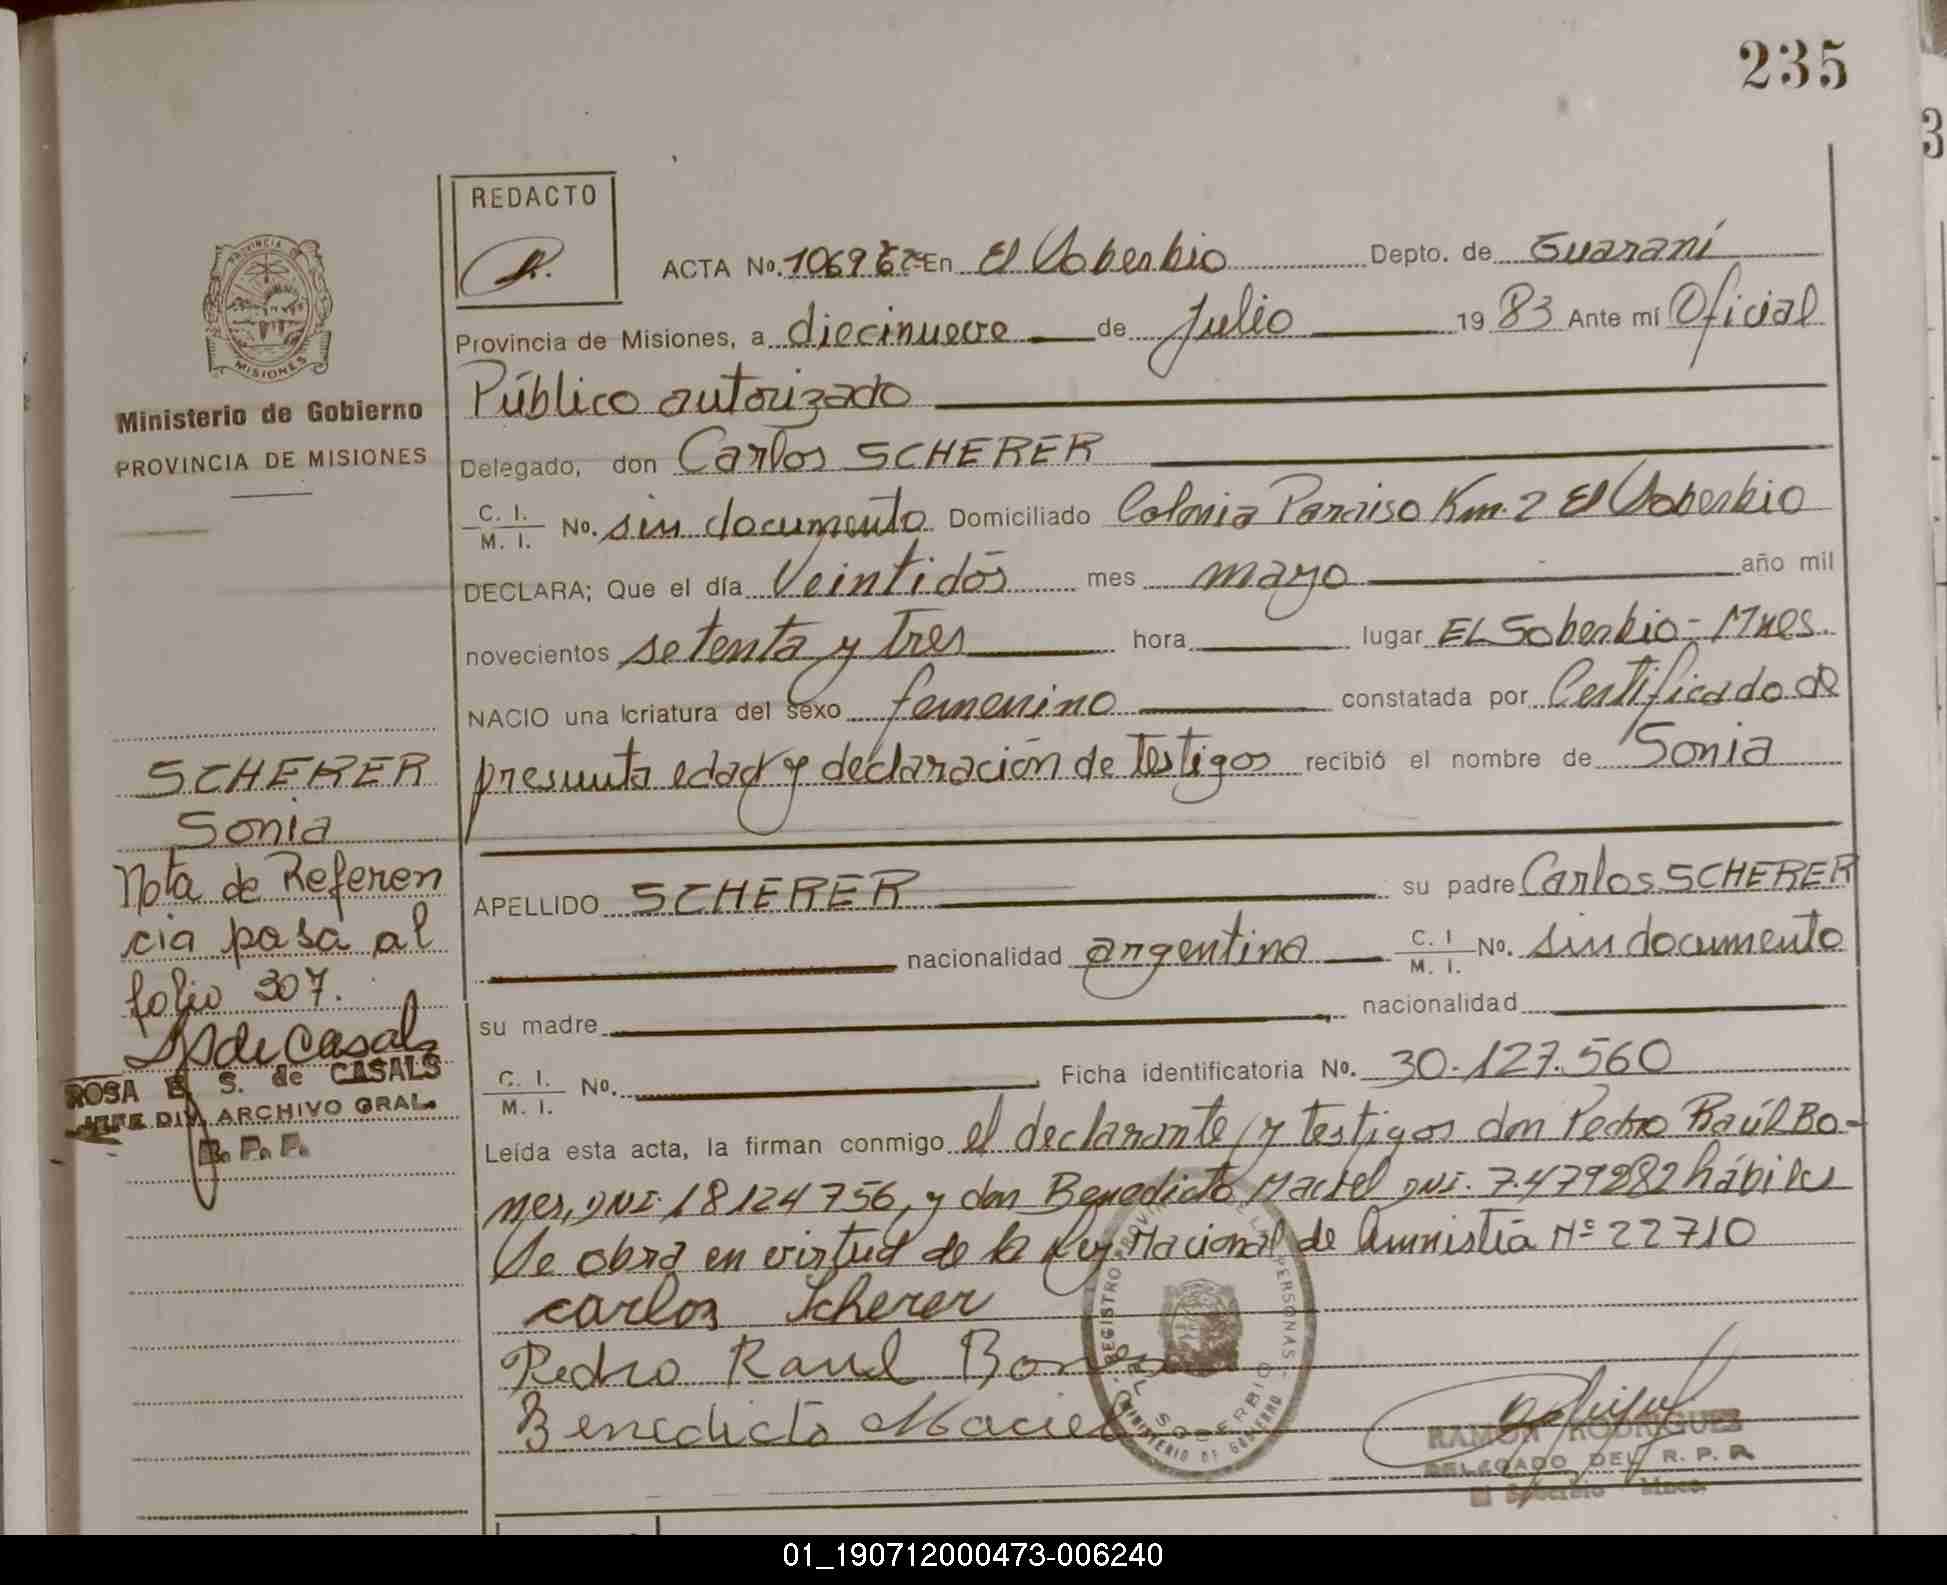 235
REDACTO
PROVINCIA
MISIONES
Ministerio de Gobierno
PROVINCIA DE MISIONES
ACTA No. En El Soberbio Depto. de Guaraní
Provincia de Misiones, a diecinueve de Julio 1983 Ante mí Oficial
Público autorizado
Delegado, don Carlos SCHERER
C. I. / M. I. No. sin documento Domiciliado Colonia Paraiso Km. 2 El Soberbio
DECLARA; Que el día Veintidós mes mayo año mil
novecientos setenta y Tres hora lugar EL Soberbio - Mnes.
NACIO una criatura del sexo femenino constatada por Certificado de
presunta edad y declaración de Testigos recibió el nombre de Sonia
APELLIDO SCHERER su padre Carlos SCHERER
nacionalidad argentina C. I / M. I. No. sin documento
su madre nacionalidad
C. I. / M. I. No. Ficha identificatoria No. 30.127.560
Leída esta acta, la firman conmigo el declarante, y testigos don Pedro Raúl Bo-
nes, DNI. 18124756, y don Benedicto Maciel DNI. 7.479282 hábiles
Se obra en virtud de la Ley Nacional de Amnistía Nº 22710
carlos Scherer
Pedro Raul
Benedicto Maciel
SCHERER
Sonia
Nota de Referen
cia pasa al
folio 307.
S de Casals
ROSA E. S. de CASALS
JEFE DIV. ARCHIVO GRAL.
R. P. P.
REGISTRO PROVINCIAL DE LAS PERSONAS
EL SOBERBIO
MINISTERIO DE GOBIERNO
RAMON RODRIGUEZ
DELEGADO DEL R. P. P.
El Soberbio Mnes.
01_190712000473-006240